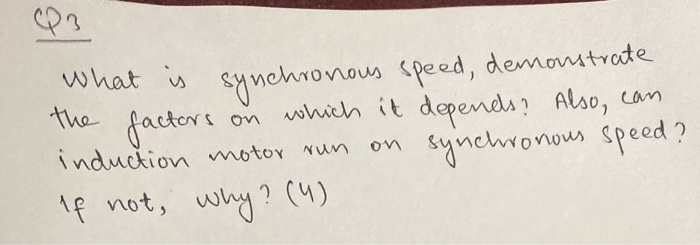 Q3
What is synchronous speed, demonstrate
the factors on which it depends? Also, can
induction motor run on synchronous speed?
If not, why? (4)